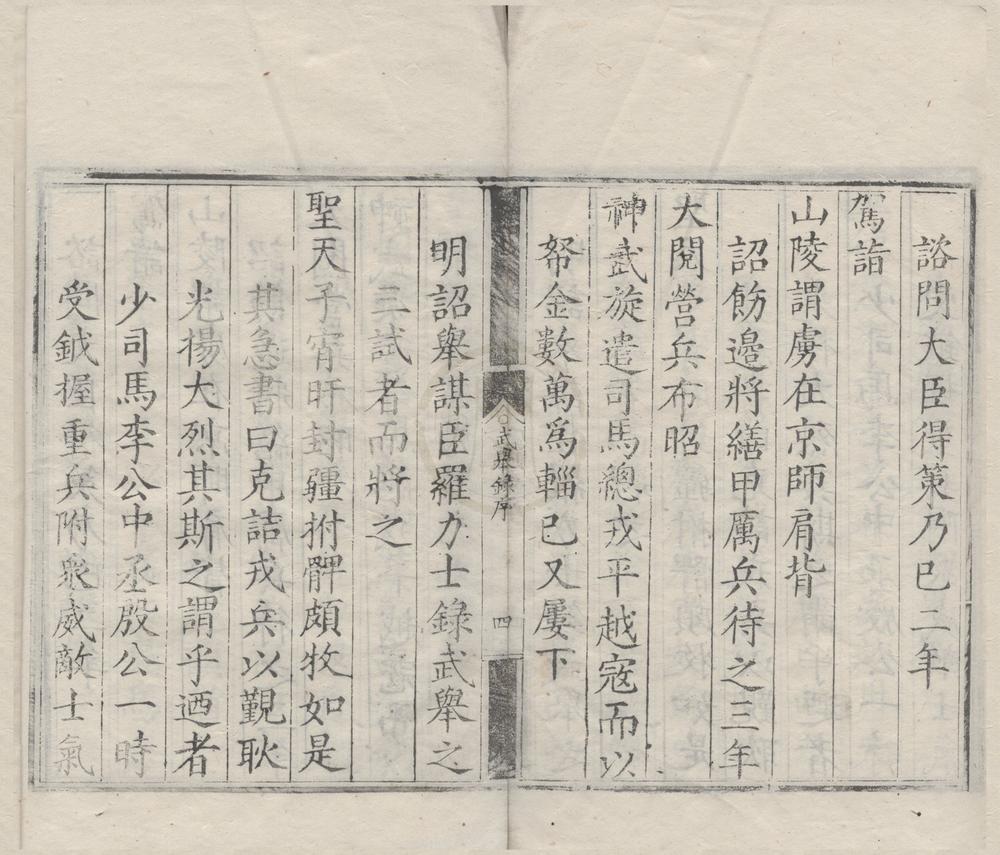 諮問大臣得策乃已二年
駕詣
山陵謂虜在京師肩背
詔飭邊將繕甲厲兵待之三年
大閱營兵布昭
神武旋遣司馬總戎平越寇而以
帑金數萬爲輜已又屢下
武舉錄序
四
明詔舉謀臣羅力士錄武舉之
三試者而將之
聖天子宵旰封疆拊髀頗牧如是
其急書曰克詰戎兵以覲耿
光揚大烈其斯之謂乎迺者
少司馬李公中丞殷公一時
受鉞握重兵附衆威敵士氣